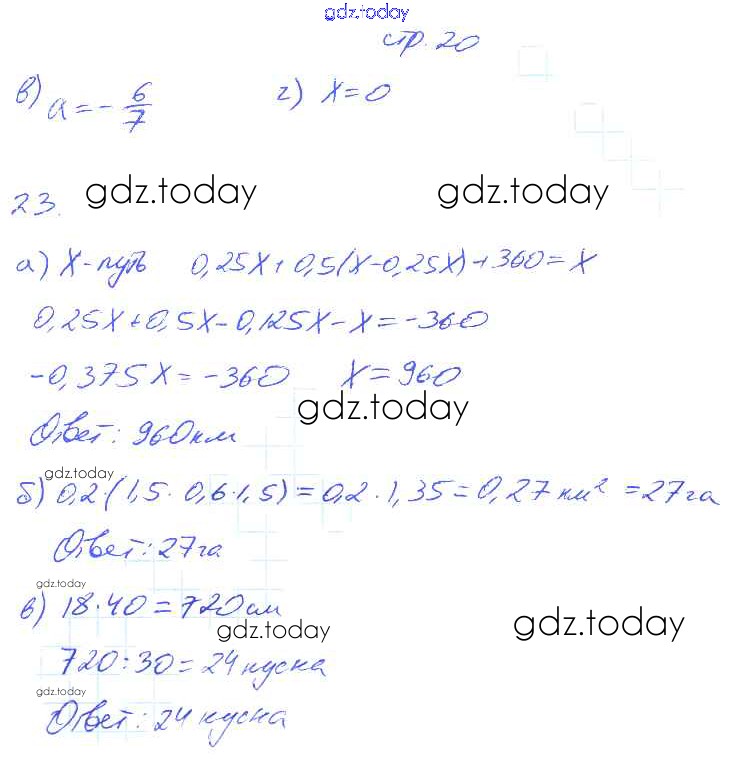 gdz.today
стр. 20
в) a = - 6/7 г) x = 0
gdz.today gdz.today
23.
а) x - путь 0,25x + 0,5(x - 0,25x) + 360 = x
0,25x + 0,5x - 0,125x - x = -360
-0,375x = -360 x = 960
gdz.today
Ответ: 960км
gdz.today
б) 0,2 · (1,5 · 0,6 · 1,5) = 0,2 · 1,35 = 0,27 км² = 27га
Ответ: 27га
gdz.today
в) 18 · 40 = 720см
gdz.today gdz.today
720 : 30 = 24 куска
gdz.today
Ответ: 24 куска